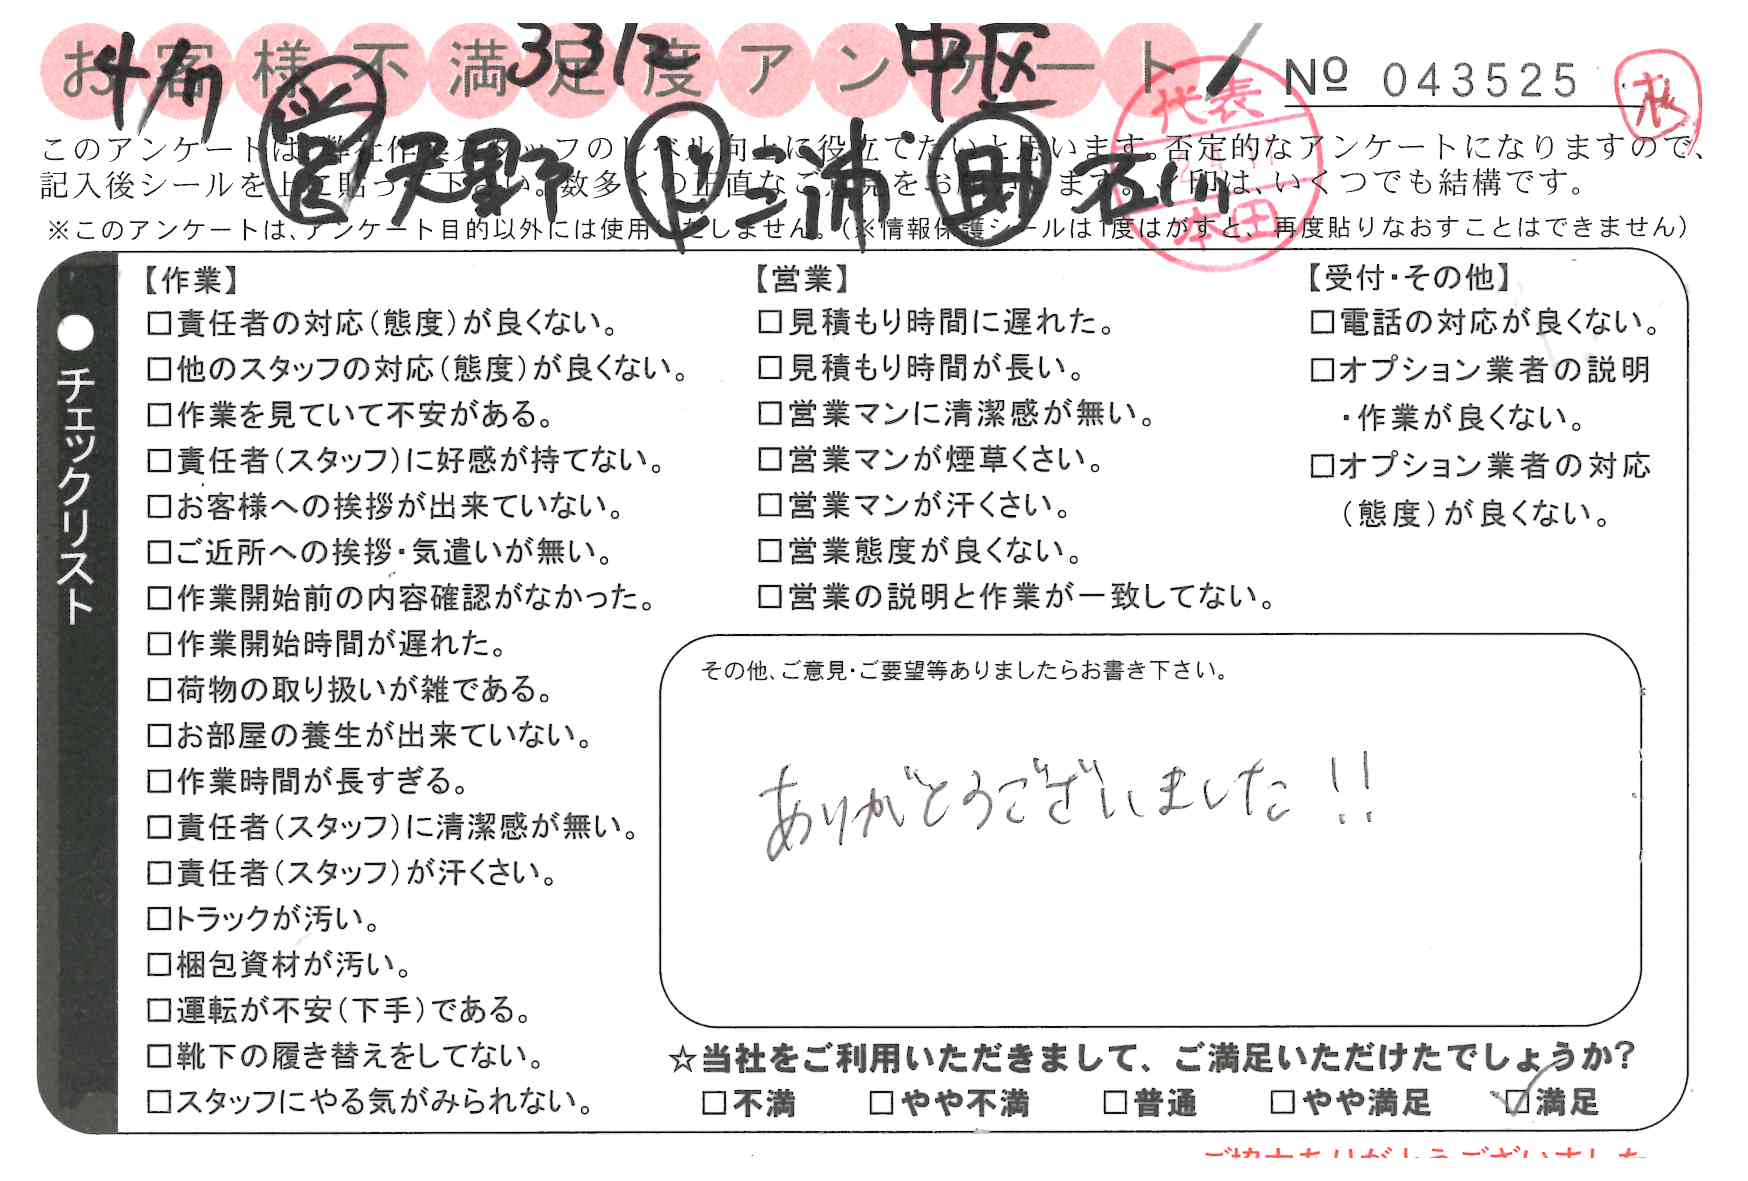 お客様不満足度アンケート
4/17 3312 中区
№ 043525
営 天野 ト 三浦 助 石川
代表
本田
このアンケートは、弊社作業スタッフのレベル向上に役立てたいと思います。否定的なアンケートになりますので、
記入後シールを上に貼って下さい。数多くの正直なご意見をお願いします。✓印は、いくつでも結構です。
※このアンケートは、アンケート目的以外には使用いたしません。(※情報保護シールは1度はがすと、再度貼りなおすことはできません)
●チェックリスト
【作業】
□責任者の対応(態度)が良くない。
□他のスタッフの対応(態度)が良くない。
□作業を見ていて不安がある。
□責任者(スタッフ)に好感が持てない。
□お客様への挨拶が出来ていない。
□ご近所への挨拶・気遣いが無い。
□作業開始前の内容確認がなかった。
□作業開始時間が遅れた。
□荷物の取り扱いが雑である。
□お部屋の養生が出来ていない。
□作業時間が長すぎる。
□責任者(スタッフ)に清潔感が無い。
□責任者(スタッフ)が汗くさい。
□トラックが汚い。
□梱包資材が汚い。
□運転が不安(下手)である。
□靴下の履き替えをしてない。
□スタッフにやる気がみられない。
【営業】
□見積もり時間に遅れた。
□見積もり時間が長い。
□営業マンに清潔感が無い。
□営業マンが煙草くさい。
□営業マンが汗くさい。
□営業態度が良くない。
□営業の説明と作業が一致してない。
【受付・その他】
□電話の対応が良くない。
□オプション業者の説明
・作業が良くない。
□オプション業者の対応
(態度)が良くない。
その他、ご意見・ご要望等ありましたらお書き下さい。
ありがとうございました!!
☆当社をご利用いただきまして、ご満足いただけたでしょうか?
□不満 □やや不満 □普通 □やや満足 ☑満足
ご協力ありがとうございました